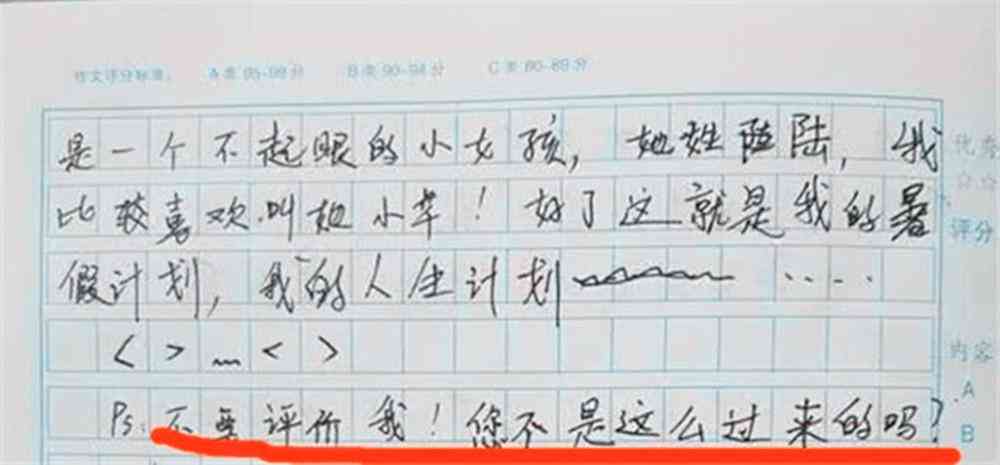 作文评分标准： A类95-99分 B类90-94分 C类80-89分
是一个不起眼的小女孩，她姓陆，我
比较喜欢叫她小苹！好了这就是我的暑
假计划，我的人生计划 ····
< > … < >
Ps.不要评价我！您不是这么过来的吗？
优秀
评分
内容
A
B